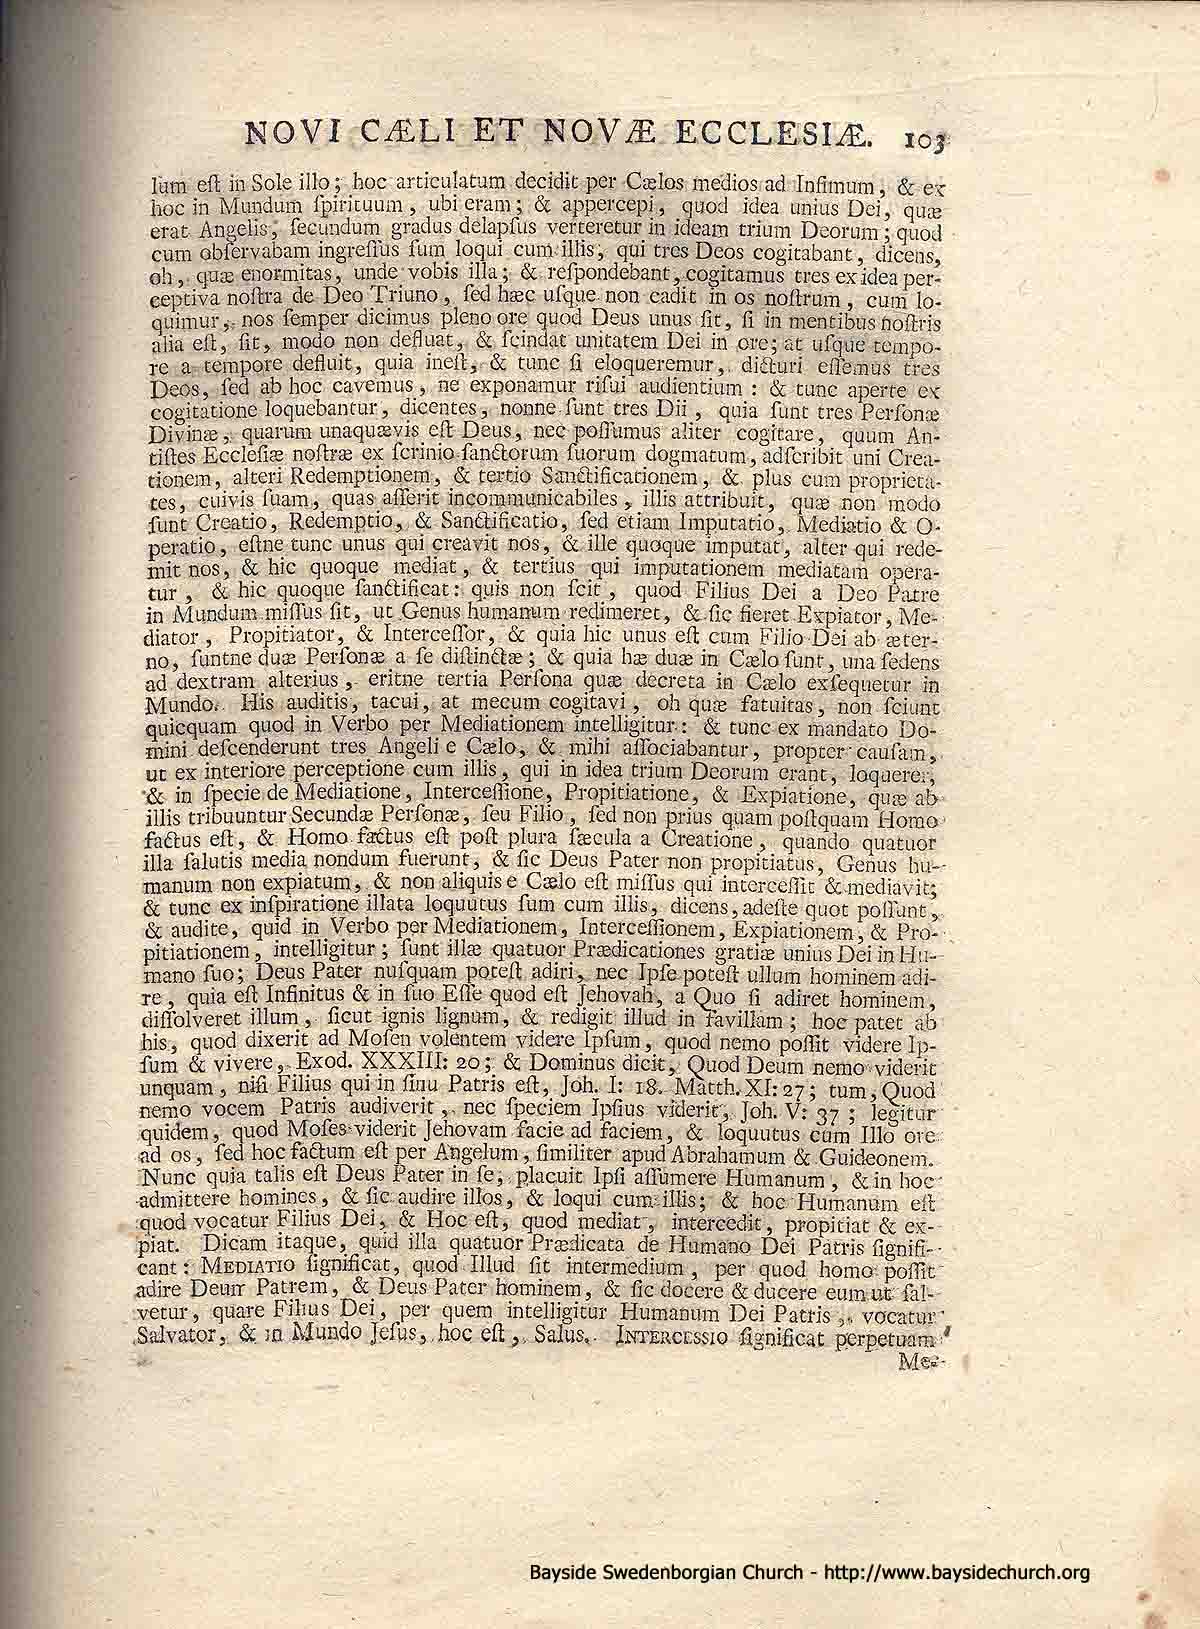 NOVI CÆLI ET NOVÆ ECCLESIÆ. 103
lum eſt in Sole illo; hoc articulatum decidit per Cælos medios ad Infimum, & ex
hoc in Mundum ſpirituum, ubi eram; & appercepi, quod idea unius Dei, quæ
erat Angelis, ſecundum gradus delapſus verteretur in ideam trium Deorum; quod
cum obſervabam ingreſſus ſum loqui cum illis, qui tres Deos cogitabant, dicens,
oh, quæ enormitas, unde vobis illa; & reſpondebant, cogitamus tres ex idea per-
ceptiva noſtra de Deo Triuno, ſed hæc uſque non cadit in os noſtrum, cum lo-
quimur, nos ſemper dicimus pleno ore quod Deus unus ſit, ſi in mentibus noſtris
alia eſt, ſit, modo non defluat, & ſcindat unitatem Dei in ore; at uſque tempo-
re a tempore defluit, quia ineſt, & tunc ſi eloqueremur, dicturi eſſemus tres
Deos, ſed ab hoc cavemus, ne exponamur riſui audientium: & tunc aperte ex
cogitatione loquebantur, dicentes, nonne ſunt tres Dii, quia ſunt tres Perſonæ
Divinæ, quarum unaquævis eſt Deus, nec poſſumus aliter cogitare, quum An-
tiſtes Eccleſiæ noſtræ ex ſcrinio ſanctorum ſuorum dogmatum, adſcribit uni Crea-
tionem, alteri Redemptionem, & tertio Sanctificationem, & plus cum proprieta-
tes, cuivis ſuam, quas aſſerit incommunicabiles, illis attribuit, quæ non modo
ſunt Creatio, Redemptio, & Sanctificatio, ſed etiam Imputatio, Mediatio & O-
peratio, eſtne tunc unus qui creavit nos, & ille quoque imputat, alter qui rede-
mit nos, & hic quoque mediat, & tertius qui imputationem mediatam opera-
tur, & hic quoque ſanctificat: quis non ſcit, quod Filius Dei a Deo Patre
in Mundum miſſus ſit, ut Genus humanum redimeret, & ſic fieret Expiator, Me-
diator, Propitiator, & Interceſſor, & quia hic unus eſt cum Filio Dei ab æter-
no, ſuntne duæ Perſonæ a ſe diſtinctæ; & quia hæ duæ in Cælo ſunt, una ſedens
ad dextram alterius, eritne tertia Perſona quæ decreta in Cælo exſequetur in
Mundo. His auditis, tacui, at mecum cogitavi, oh quæ fatuitas, non ſciunt
quicquam quod in Verbo per Mediationem intelligitur: & tunc ex mandato Do-
mini deſcenderunt tres Angeli e Cælo, & mihi aſſociabantur, propter cauſam,
ut ex interiore perceptione cum illis, qui in idea trium Deorum erant, loquerer,
& in ſpecie de Mediatione, Interceſſione, Propitiatione, & Expiatione, quæ ab
illis tribuuntur Secundæ Perſonæ, ſeu Filio, ſed non prius quam poſtquam Homo
factus eſt, & Homo factus eſt poſt plura ſæcula a Creatione, quando quatuor
illa ſalutis media nondum fuerunt, & ſic Deus Pater non propitiatus, Genus hu-
manum non expiatum, & non aliquis e Cælo eſt miſſus qui interceſſit & mediavit;
& tunc ex inſpiratione illata loquutus ſum cum illis, dicens, adeſte quot poſſunt,
& audite, quid in Verbo per Mediationem, Interceſſionem, Expiationem, & Pro-
pitiationem, intelligitur; ſunt illæ quatuor Prædicationes gratiæ unius Dei in Hu-
mano ſuo; Deus Pater nuſquam poteſt adiri, nec Ipſe poteſt ullum hominem adi-
re, quia eſt Infinitus & in ſuo Eſſe quod eſt Jehovah, a Quo ſi adiret hominem,
diſſolveret illum, ſicut ignis lignum, & redigit illud in favillam; hoc patet ab
his, quod dixerit ad Moſen volentem videre Ipſum, quod nemo poſſit videre Ip-
ſum & vivere, Exod. XXXIII: 20; & Dominus dicit, Quod Deum nemo viderit
unquam, niſi Filius qui in ſinu Patris eſt, Joh. I: 18. Matth. XI: 27; tum, Quod
nemo vocem Patris audiverit, nec ſpeciem Ipſius viderit, Joh. V: 37; legitur
quidem, quod Moſes viderit Jehovam facie ad faciem, & loquutus cum Illo ore
ad os, ſed hoc factum eſt per Angelum, ſimiliter apud Abrahamum & Guideonem.
Nunc quia talis eſt Deus Pater in ſe, placuit Ipſi aſſumere Humanum, & in hoc
admittere homines, & ſic audire illos, & loqui cum illis; & hoc Humanum eſt
quod vocatur Filius Dei, & Hoc eſt, quod mediat, intercedit, propitiat & ex-
piat. Dicam itaque, quid illa quatuor Prædicata de Humano Dei Patris ſignifi-
cant: MEDIATIO ſignificat, quod Illud ſit intermedium, per quod homo poſſit
adire Deum Patrem, & Deus Pater hominem, & ſic docere & ducere eum ut ſal-
vetur, quare Filius Dei, per quem intelligitur Humanum Dei Patris, vocatur
Salvator, & in Mundo Jeſus, hoc eſt, Salus. INTERCESSIO ſignificat perpetuam
Me-
Bayside Swedenborgian Church - http://www.baysidechurch.org